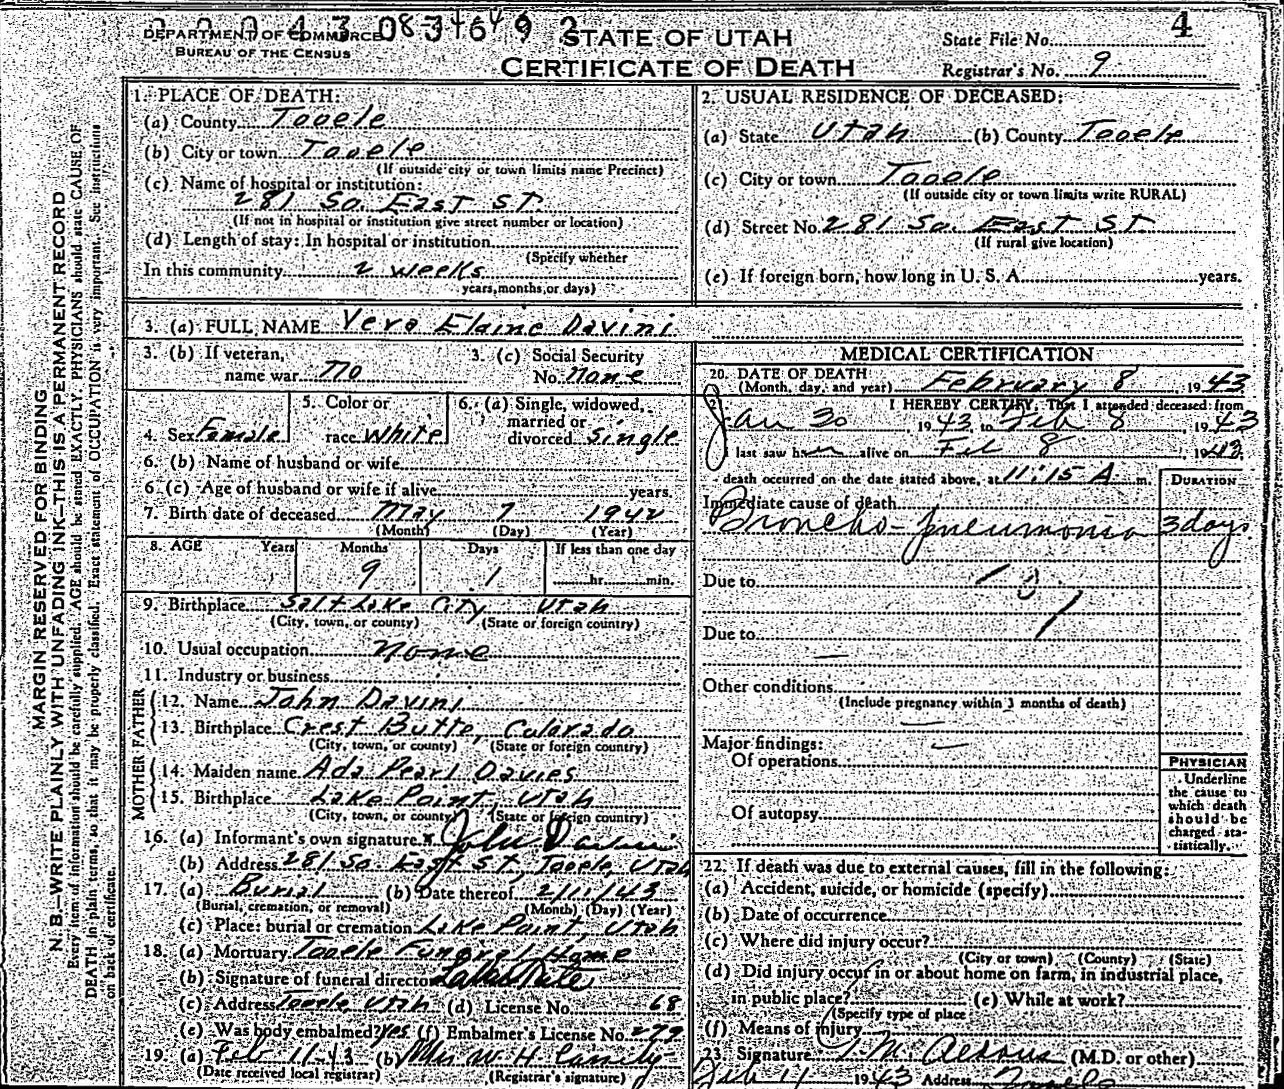 DEPARTMENT OF COMMERCE
BUREAU OF THE CENSUS
STATE OF UTAH
CERTIFICATE OF DEATH
4
State File No.
Registrar's No. 9
MARGIN RESERVED FOR BINDING
N. B.—WRITE PLAINLY WITH UNFADING INK—THIS IS A PERMANENT RECORD
Every item of information should be carefully supplied. AGE should be stated EXACTLY. PHYSICIANS should state CAUSE OF
DEATH in plain terms, so that it may be properly classified. Exact statement of OCCUPATION is very important. See instructions
on back of certificate.
1. PLACE OF DEATH:
(a) County Tooele
(b) City or town Tooele
(If outside city or town limits name Precinct)
(c) Name of hospital or institution:
281 So. East St.
(If not in hospital or institution give street number or location)
(d) Length of stay: In hospital or institution
(Specify whether
In this community 2 weeks
years, months, or days)
2. USUAL RESIDENCE OF DECEASED:
(a) State Utah (b) County Tooele
(c) City or town Tooele
(If outside city or town limits write RURAL)
(d) Street No. 281 So. East St.
(If rural give location)
(e) If foreign born, how long in U. S. A. years.
3. (a) FULL NAME Vera Elaine Davini
3. (b) If veteran, name war No
3. (c) Social Security No. None
4. Sex Female
5. Color or race White
6. (a) Single, widowed, married or divorced Single
6. (b) Name of husband or wife
6. (c) Age of husband or wife if alive years.
7. Birth date of deceased May 7 1942
(Month) (Day) (Year)
8. AGE Years Months Days If less than one day
9 1 hr. min.
9. Birthplace Salt Lake City Utah
(City, town, or county) (State or foreign country)
10. Usual occupation None
11. Industry or business
FATHER
12. Name John Davini
13. Birthplace Crest Butte, Colorado
(City, town, or county) (State or foreign country)
MOTHER
14. Maiden name Ada Pearl Davies
15. Birthplace Lake Point, Utah
(City, town, or county) (State or foreign country)
16. (a) Informant's own signature x John Davini
(b) Address 281 So. East St., Tooele, Utah
17. (a) Burial (b) Date thereof 2/11/43
(Burial, cremation, or removal) (Month) (Day) (Year)
(c) Place: burial or cremation Lake Point, Utah
18. (a) Mortuary Tooele Funeral Home
(b) Signature of funeral director
(c) Address Tooele Utah (d) License No. 68
(e) Was body embalmed? Yes (f) Embalmer's License No. 279
19. (a) Feb 11-43 (b) Mrs W. H. Cassity
(Date received local registrar) (Registrar's signature)
MEDICAL CERTIFICATION
20. DATE OF DEATH
(Month, day, and year) February 8 1943
I HEREBY CERTIFY, That I attended deceased from
Jan 30 1943, to Feb 8 1943
I last saw her alive on Feb 8, 1943,
death occurred on the date stated above, at 11:15 A m.
DURATION
Immediate cause of death
Broncho-pneumonia 3 days
Due to
Due to
Other conditions
(Include pregnancy within 3 months of death)
Major findings:
Of operations
Of autopsy
PHYSICIAN
Underline
the cause to
which death
should be
charged sta-
tistically.
22. If death was due to external causes, fill in the following:
(a) Accident, suicide, or homicide (specify)
(b) Date of occurrence
(c) Where did injury occur?
(City or town) (County) (State)
(d) Did injury occur in or about home on farm, in industrial place,
in public place? (e) While at work?
(Specify type of place
(f) Means of injury
23. Signature T. M. Aldous (M.D. or other)
Feb 11 1943 Address Tooele